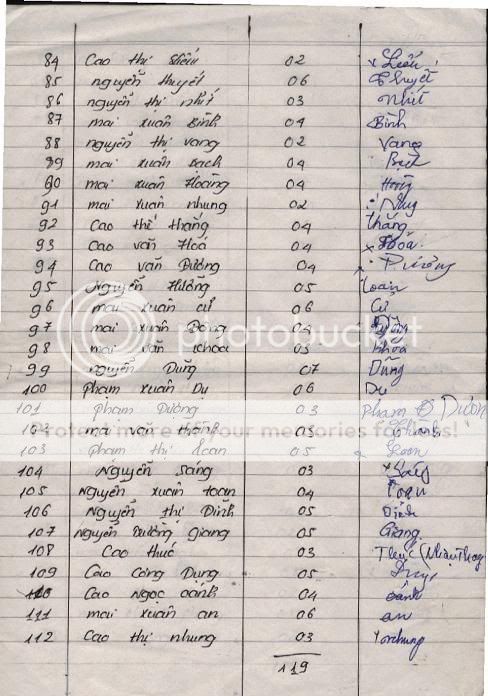 84 Cao thị Hiếu 02
85 nguyễn thuyết 06 Thuyết
86 nguyễn thị nhít 03 Nhít
87 mai xuân Bình 04 Bình
88 nguyễn thị vang 02 Vang
89 mai xuân Bạch 04 Bạch
90 mai xuân Hoàng 04 Hoàng
91 mai xuân nhung 02
92 Cao thế thắng 04 thắng
93 Cao văn Hoá 04 x Hoá
94 Cao văn Dương 04 Dương
95 Nguyễn Hường 05 Loan
96 mai xuân cử 06 Cử
97 mai xuân Đông 04
98 mai văn khoa 03 khoa
99 nguyễn Dũng 07 Dũng
100 phạm xuân Dụ 06 Dụ
101 phạm Dương 03 phạm Dươn
102 mai văn 03
103 phạm thị Loan 05 Loan
104 Nguyễn sang 03 x Sáng
105 Nguyễn xuân toan 04 Toan
106 Nguyễn thị Định 05 Định
107 Nguyễn Trường giang 05 Giang
108 Cao thuế 03
109 Cao Công Dung 05 Dung
110 Cao Ngọc oánh 04 oánh
111 mai xuân an 06 an
112 Cao thị nhung 03
119
photobucket
Protect more of your memories for less!